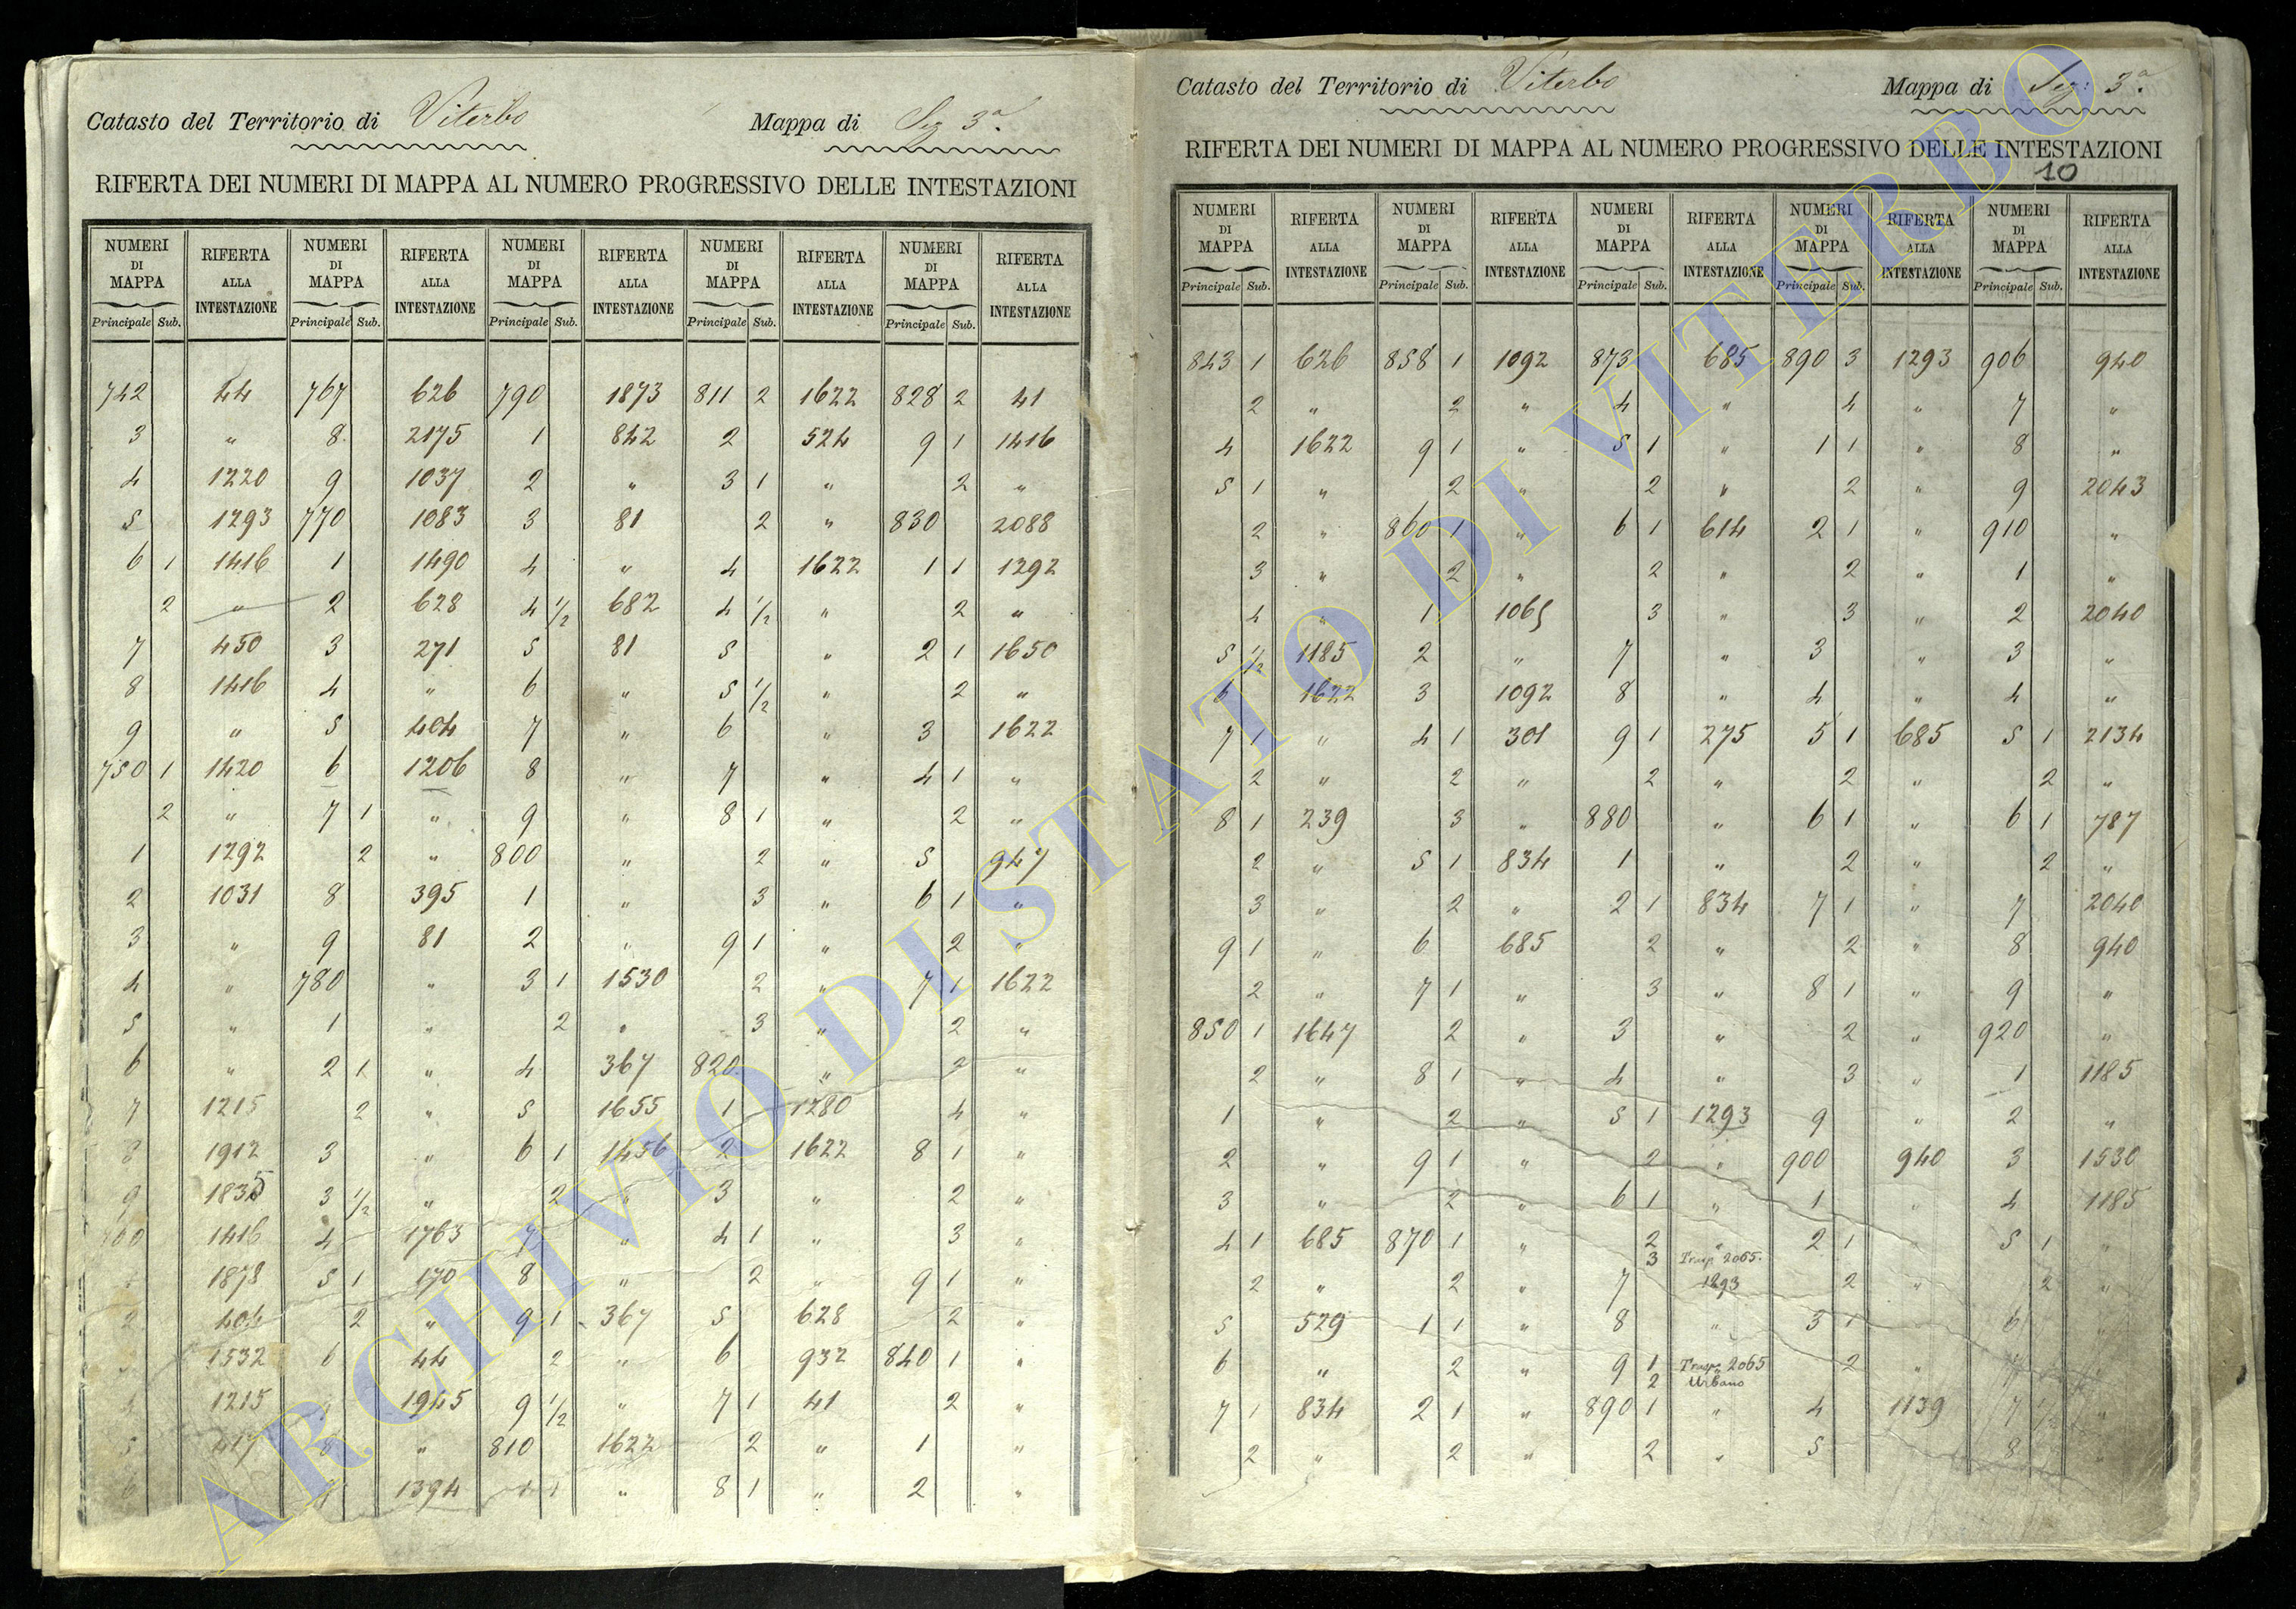 Catasto del Territorio di Viterbo Mappa di Sez 3ª
RIFERTA DEI NUMERI DI MAPPA AL NUMERO PROGRESSIVO DELLE INTESTAZIONI
NUMERI DI MAPPA RIFERTA ALLA INTESTAZIONE NUMERI DI MAPPA RIFERTA ALLA INTESTAZIONE NUMERI DI MAPPA RIFERTA ALLA INTESTAZIONE NUMERI DI MAPPA RIFERTA ALLA INTESTAZIONE NUMERI DI MAPPA RIFERTA ALLA INTESTAZIONE
Principale Sub. Principale Sub. Principale Sub. Principale Sub. Principale Sub.
742 44 767 626 790 1873 811 2 1622 828 2 41
3 " 8 2175 1 842 2 524 9 1 1416
4 1220 9 1037 2 " 3 1 " 2 "
5 1293 770 1083 3 81 2 " 830 2088
6 1 1416 1 1490 4 " 4 1622 1 1 1292
2 " 2 628 4 1/2 682 4 1/2 " 2 "
7 450 3 271 5 81 5 " 2 1 1650
8 1416 4 " 6 " 5 1/2 " 2 "
9 " 5 404 7 " 6 " 3 1622
750 1 1420 6 1206 8 " 7 " 4 1 "
2 " 7 1 " 9 " 8 1 " 2 "
1 1292 2 " 800 " 2 " 5 947
2 1031 8 395 1 " 3 " 6 1 "
3 " 9 81 2 " 9 1 " 2 "
4 " 780 " 3 1 1530 2 " 7 1 1622
5 " 1 " 2 " 3 " 2 "
6 " 2 1 " 4 367 820 " 3 "
7 1215 2 " 5 1655 1 1280 4 "
8 1912 3 " 6 1 1456 2 1622 8 1 "
9 1835 3 1/2 " 2 " 3 " 2 "
760 1416 4 1763 7 " 4 1 " 3 "
1878 5 1 170 8 " 2 " 9 1 "
2 404 2 " 9 1 367 5 628 2 "
1532 6 44 2 " 6 932 840 1 "
1215 1945 9 1/2 " 7 1 41 2 "
5 417 8 " 810 1622 2 " 1 "
6 1394 1 1 " 8 1 " 2 "
Catasto del Territorio di Viterbo Mappa di Sez: 3ª
RIFERTA DEI NUMERI DI MAPPA AL NUMERO PROGRESSIVO DELLE INTESTAZIONI
10
NUMERI DI MAPPA RIFERTA ALLA INTESTAZIONE NUMERI DI MAPPA RIFERTA ALLA INTESTAZIONE NUMERI DI MAPPA RIFERTA ALLA INTESTAZIONE NUMERI DI MAPPA RIFERTA ALLA INTESTAZIONE NUMERI DI MAPPA RIFERTA ALLA INTESTAZIONE
Principale Sub. Principale Sub. Principale Sub. Principale Sub. Principale Sub.
843 1 626 858 1 1092 873 685 890 3 1293 906 940
2 " 2 " 4 " 4 " 7 "
4 1622 9 1 " 5 1 " 1 1 " 8 "
5 1 " 2 " 2 " 2 " 9 2043
2 " 860 1 " 6 1 614 2 1 " 910 "
3 " 2 " 2 " 2 " 1 "
4 " 1 1065 3 " 3 " 2 2040
5 1/2 1185 2 " 7 " 3 " 3 "
6 1622 3 1092 8 " 4 " 4 "
7 1 " 4 1 301 9 1 275 5 1 685 5 1 2134
2 " 2 " 2 " 2 " 2 "
8 1 239 3 " 880 " 6 1 " 6 1 787
2 " 5 1 834 1 " 2 " 2 "
3 " 2 " 2 1 834 7 1 " 7 2040
9 1 " 6 685 2 " 2 " 8 940
2 " 7 1 " 3 " 8 1 " 9 "
850 1 1647 2 " 3 " 2 " 920 "
2 " 8 1 " 4 " 3 " 1 1185
1 " 2 " 5 1 1293 9 " 2 "
2 " 9 1 " 2 " 900 940 3 1530
3 " 2 " 6 1 " 1 " 4 1185
4 1 685 870 1 " 2 " 2 1 " 5 1 "
3 Trasp. 2065.
2 " 2 " 7 1293 2 " 2 "
5 529 1 1 " 8 " 3 1 " 6 "
6 " 2 " 9 1 Trasp. 2065 2 " 7 "
2 Urbano
7 1 834 2 1 " 890 1 " 4 1139 7 1/2 "
2 " 2 " 2 " 5 " 8 "
ARCHIVIO DI STATO DI VITERBO